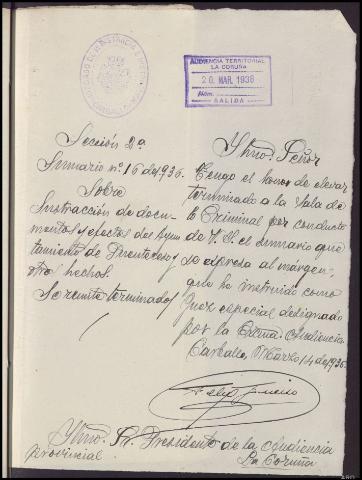 JUZGADO DE 1ª INSTANCIA E INSTRUCCIÓN
CARBALLO
AUDIENCIA TERRITORIAL
LA CORUÑA
20 MAR. 1936
Núm.
SALIDA
Sección 2ª
Sumario nº 16 de 1936.
Sobre
Sustracción de docu-
mentos y efectos del Ayun
tamiento de Puenteceso y
otros hechos.
Se remite terminado
Yltmo. Señor
Tengo el honor de elevar
terminado a la Sala de
lo Criminal por conducto
de V. S. el sumario que
se expresa al márgen,
que ha instruido como
Juez especial designado
por la Excma. Audiencia
Carballo, Marzo 14 de 1936.
Yltmo. Sr. Presidente de la Audiencia
provincial.
La Coruña